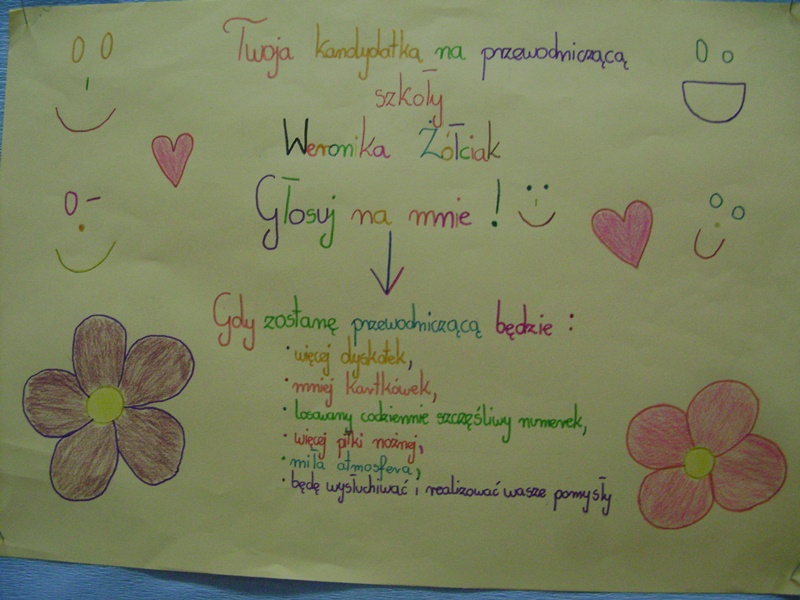 Twoja kandydatka na przewodniczącą
szkoły
Weronika Żółciak
Głosuj na mnie !
Gdy zostanę przewodniczącą będzie :
· więcej dyskotek,
· mniej kartkówek,
· losowany codziennie szczęśliwy numerek,
· więcej piłki nożnej,
· miła atmosfera,
· będę wysłuchiwać i realizować wasze pomysły